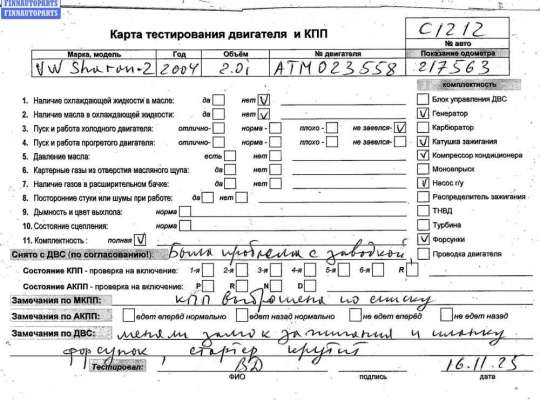 FINNAUTOPARTS
FINNAUTOPARTS
Карта тестирования двигателя и КПП
C1212
№ авто
Марка, модель Год Объём № двигателя Показание одометра
VW Sharan-2 2004 2.0i ATM023558 217563
комплектность
1. Наличие охлаждающей жидкости в масле: да нет V
2. Наличие масла в охлаждающей жидкости: да нет V
3. Пуск и работа холодного двигателя: отлично- норма - плохо - не завелся- V
4. Пуск и работа прогретого двигателя: отлично- норма - плохо - не завелся-
5. Давление масла: есть нет
6. Картерные газы из отверстия масляного щупа: да нет
7. Наличие газов в расширительном бачке: да нет
8. Посторонние стуки или шумы при работе: да нет
9. Дымность и цвет выхлопа: норма
10. Состояние сцепления: норма
11. Комплектность: полная V
Блок управления ДВС
V Генератор
Карбюратор
V Катушка зажигания
V Компрессор кондиционера
Моновпрыск
V Насос г/у
Распределитель зажигания
ТНВД
Турбина
V Форсунки
Проводка двигателя
Снято с ДВС (по согласованию!): Была проблема с заводкой,
Состояние КПП - проверка на включение: 1-я 2-я 3-я 4-я 5-я 6-я R
Состояние АКПП - проверка на включение: P R N D
Замечания по МКПП: КПП выброшена по списку
Замечания по АКПП: едет вперёд нормально едет назад нормально не едет вперёд не едет назад
Замечания по ДВС: меняли замок зажигания и планку
форсунок, стартер крутит
Тестировал: ВД 16.11.25
ФИО подпись дата